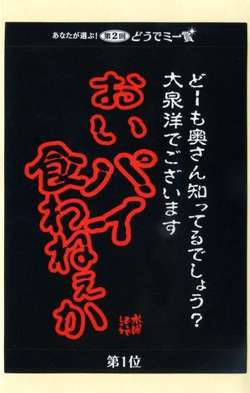 あなたが選ぶ！第2回どうでミー賞
どーも奥さん知ってるでしょう？
大泉洋でございます
おい
パイ
食わねぇか
第1位